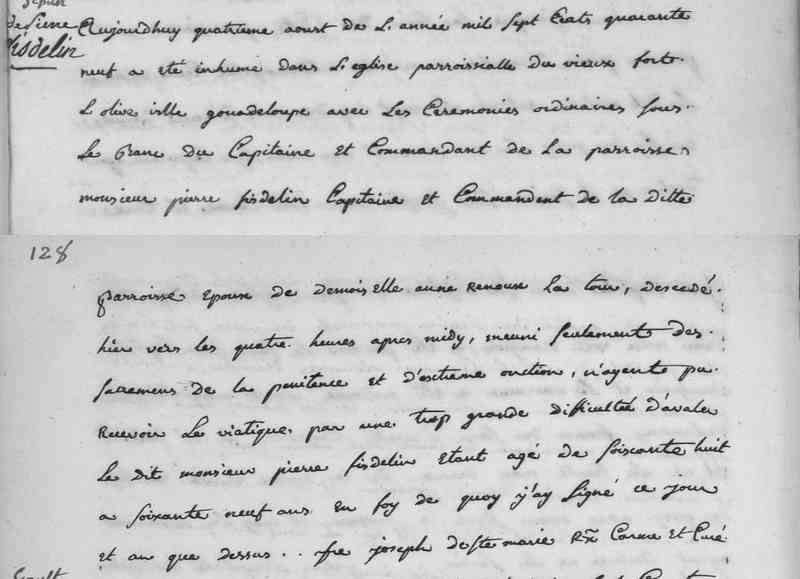 de pierre
fisdelin
Aujourdhuy quatrieme aoust de L'année mil sept Cents quarante
neuf a eté inhumé dans L'eglise parroissialle du vieux fort
L'olive isle gouadeloupe avec Les Ceremonies ordinaires sous
Le Banc du Capitaine et Commandant de La parroisse
monsieur pierre fisdelin Capitaine et Commandent de la ditte
128
parroisse Epoux de demoiselle anne Renoux La tour, decedé
hier vers les quatre heures apres midy, meuni seulements des
sacremens de la penitence et d'extreme onction, n'ayents pu
Recevoir Le viatique par une trop grande difficultée d'avaler
Le dit monsieur pierre fisdelin Etant agé de soixante huit
a soixante neuf ans En foy de quoy j'ay signé ce jour
et an que dessus .. fre joseph de ste marie Rx Carme et Curé